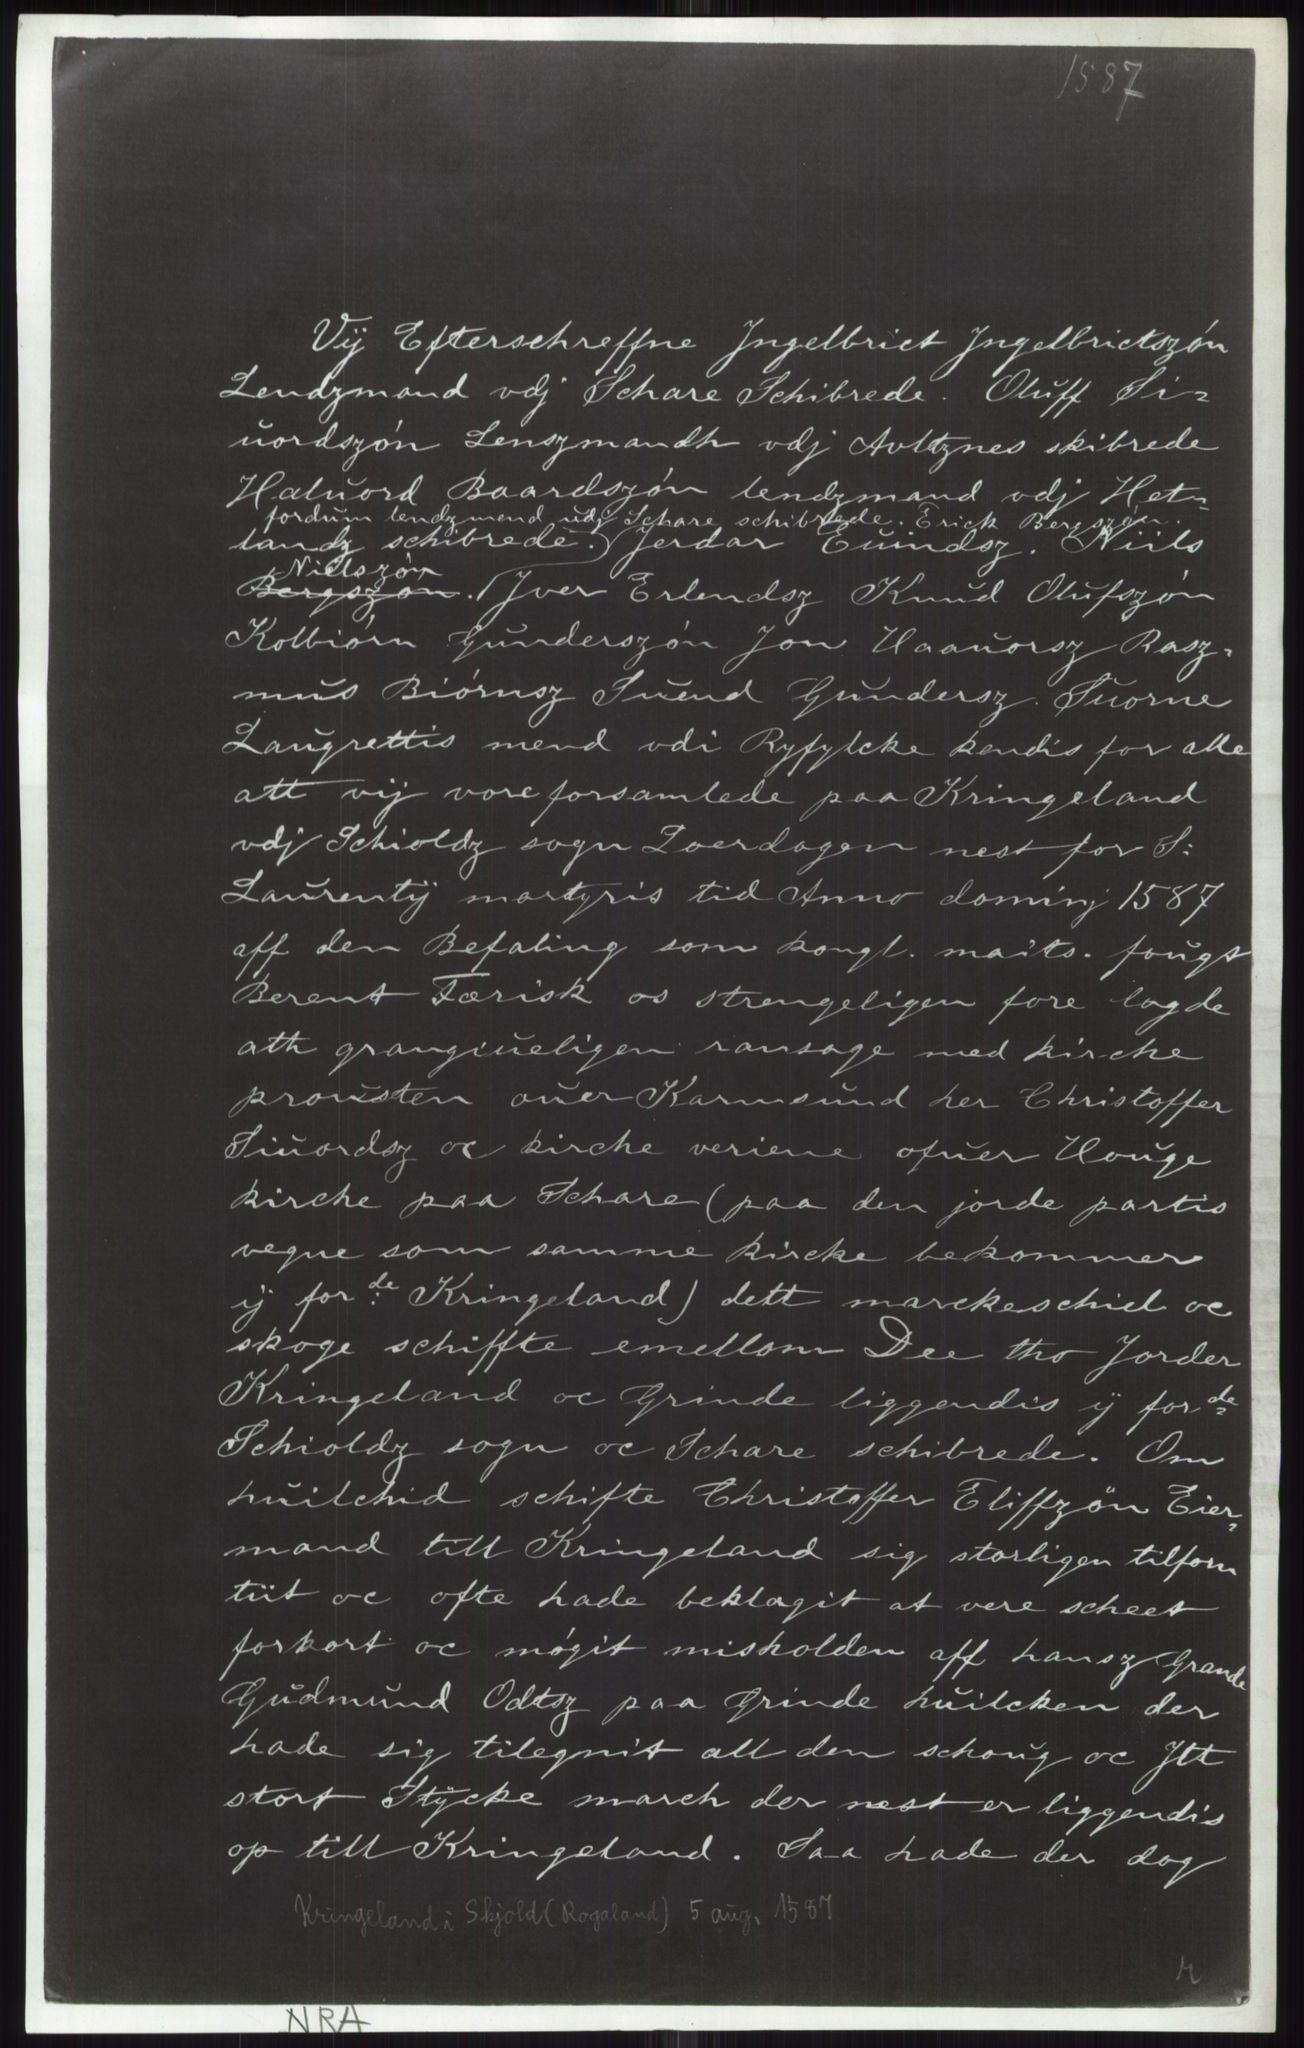 1587
Vij Efterschreffne Jngelbrict Jngelbrictszøn
Lendzmand vdj Schare Schibrede. Oluff Si-
uordszøn Lenszmandh vdj Avltznes skibrede
Haluord Baardszøn lendzmand vdj Het-
fordum lendzmend udj Schare schibrede. Erick Bergszøn.
landz schibrede. Jerdar Euindsz. Niils
Nielszøn
Bergszøn. Jver Erlendsz Knud Olufszøn
Kolbiørn Gunderszøn Jon Haauorsz Rasz-
mus Biørnsz Suend Gundersz. Suorne
Laugrettis mend vdi Ryfylcke kendis for alle
att vij vore forsamlede paa Kringeland
vdj Schioldz sogn Loerdagen nest for S:
Laurentij martyris tid Anno dominj 1587
aff den Befaling som kongl. maits. fougt
Berent Færisk os strengeligen fore lagde
ath grangiueligen ransage med kirche
prousten ouer Karmsund her Christoffer
Siuordsz oc kirche veriene ofuer Houge
kirche paa Schare (paa den jorde partis
vegne som samme kircke bekommer
ij for:de Kringeland) dett marckeschiel oc
skoge schiffte emellom Dee tho Jorder
Kringeland oc Grinde liggendis ij for:de
Schioldz sogn oc Schare schibrede. Om
huilchid schifte Christoffer Eliffzön Eier-
mand till Kringeland sig storligen tilforn
tiit oc ofte hade beklagit at vere scheet
forkort oc møgit misholden aff hansz Grande
Gudmund Odtsz paa Grinde huilcken der
hade sig tilegnit all den schoug oc Jtt
stort Stÿcke march der nest er liggendis
op till Kringeland. Saa hade der dog
Kringeland i Skjold (Rogaland) 5 aug. 1587
NRA